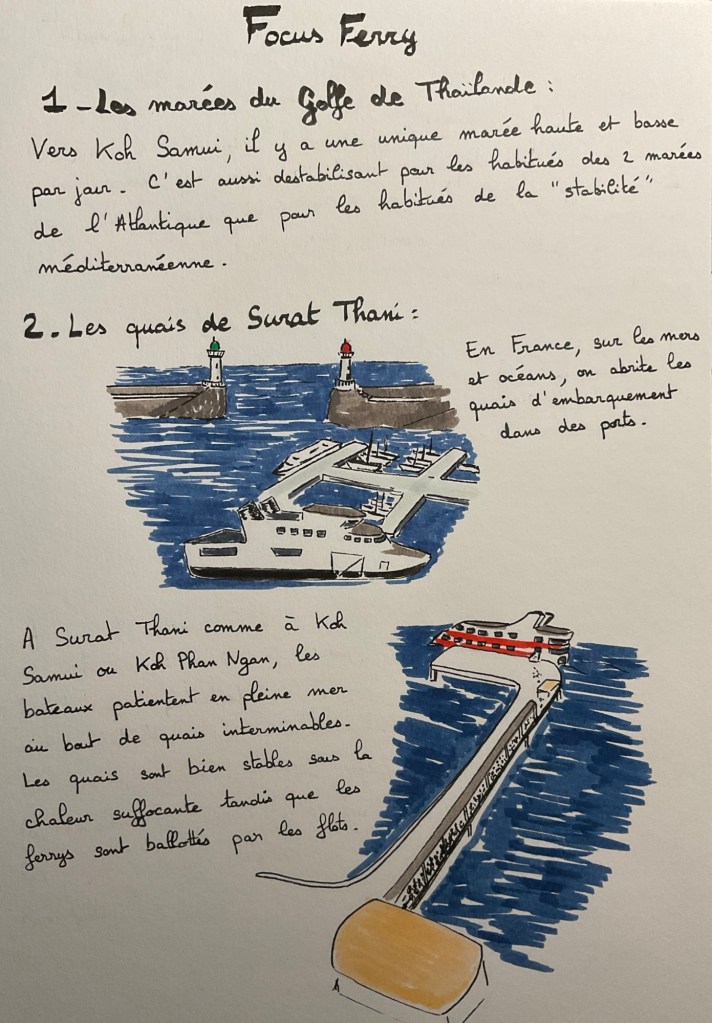 Focus Ferry
1 - Les marées du Golfe de Thaïlande :
Vers Koh Samui, il y a une unique marée haute et basse
par jour. C'est aussi destabilisant pour les habitués des 2 marées
de l'Atlantique que pour les habitués de la "stabilité"
méditerranéenne.
2. Les quais de Surat Thani :
En France, sur les mers
et océans, on abrite les
quais d'embarquement
dans des ports.
A Surat Thani comme à Koh
Samui ou Koh Phan Ngan, les
bateaux patientent en pleine mer
au bout de quais interminables.
Les quais sont bien stables sous la
chaleur suffocante tandis que les
ferrys sont ballottés par les flots.